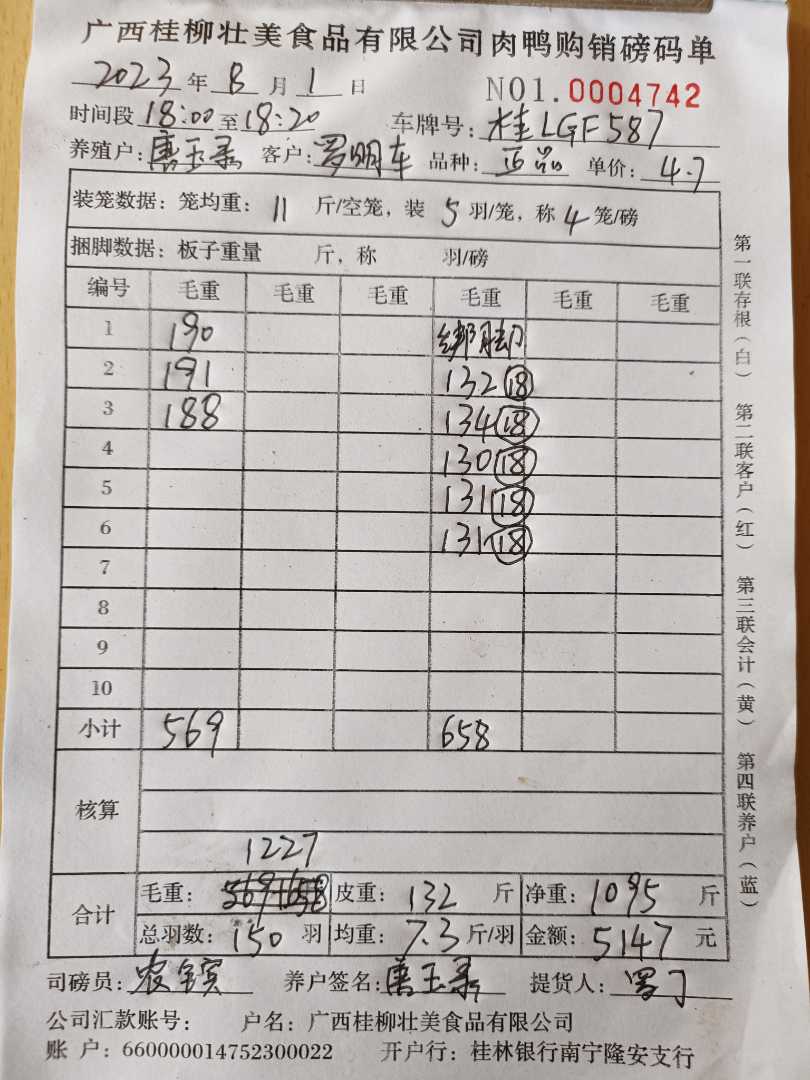 广西桂柳壮美食品有限公司肉鸭购销磅码单
2023年8月1日 NO1.0004742
时间段18:00至18:20 车牌号:桂LGF587
养殖户:唐玉 客户:罗明车 品种:正品 单价:4.7
装笼数据:笼均重:11斤/空笼,装5羽/笼,称4笼/磅
捆脚数据:板子重量 斤,称 羽/磅
编号 毛重 毛重 毛重 毛重 毛重 毛重
1 190 绑脚
2 191 132 18
3 188 134 18
4 130 18
5 131 18
6 131 18
7
8
9
10
小计 569 658
核算
1227
合计 毛重: 569+658 皮重:132斤 净重:1095斤
总羽数:150羽 均重:7.3斤/羽 金额:5147元
司磅员:农 宾 养户签名:唐玉 提货人:罗
公司汇款账号: 户名:广西桂柳壮美食品有限公司
账 户:660000014752300022 开户行:桂林银行南宁隆安支行
第一联存根(白) 第二联客户(红) 第三联会计(黄) 第四联养户(蓝)